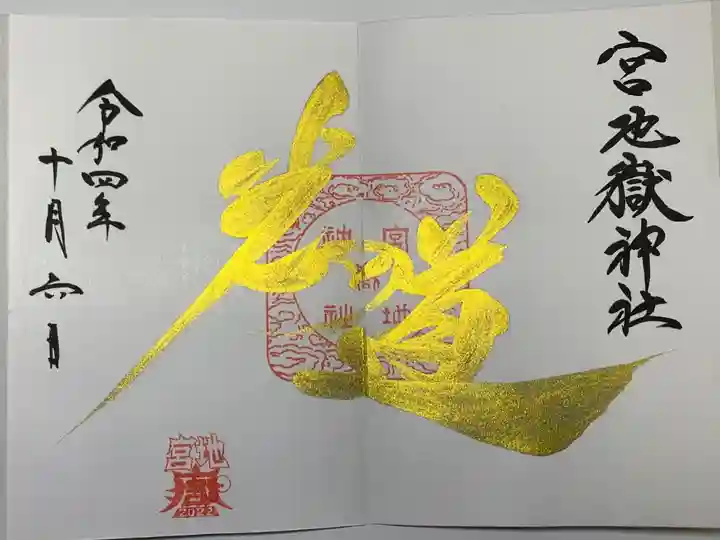 宮地嶽神社
光の道
宮地
嶽神社
令和四年
十月六日
宮地